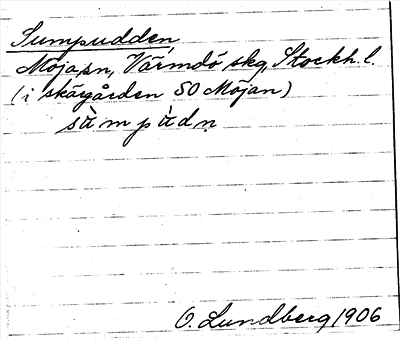 Sumpudden
Möja sn, Värmdö skg, Stockh. l.
(i skärgården SO Möjan)
sùmpùdn̥
O. Lundberg 1906